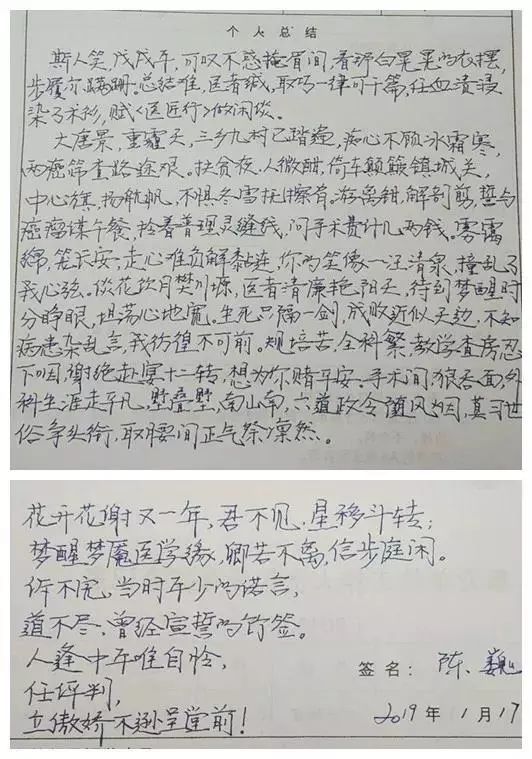 个人总结
斯人笑,戊戌年,可叹不惑掩眉间,看那白晃晃的衣摆,
步履尔蹒跚。总结难,医者绒,取巧一律可千篇,任血渍浸
染了衣衫,赋《医匠行》做闲谈。
大唐景,重霾天,三乡九村已踏遍,痴心不顾冰霜寒,
两癌筛查路途艰。扶贫夜,人微酣,倚车颠簸镇城关,
中心旗,扬航帆,不惧冬雪抚擦肩。游离钳,解剖剪,誓与
癌瘤谋午餐,拎着普理灵缝线,问手术费计几两钱。雾霭
绵,笼长安,走心难负解黏连,你的笑像一汪清泉,撞乱了
我心弦。谈花饮月樊川塬,医者清廉艳阳天,待到梦醒时
分睁眼,坦荡心地宽。生死只隔一剑,成败近似天边,不知
病患杂乱言,我彷徨不可前。规培苦,全科繁,教学查房忍
下咽,谢绝赴宴十二转,想为你赌平安。手术间,狼吞面,外
科生涯走平凡,墅叠墅,南山南,六道政令随风烟,莫习世
俗争头衔,取腰间正气祭凛然。
花开花谢又一年,君不见,星移斗转;
梦醒梦魇医学缘,卿若不离,信步庭闲。
诉不完,当时年少的诺言,
道不尽,曾经宣誓的
人逢中年唯自怜,
任评判,
立傲娇不逊呈堂前!
签名: 陈巍
2019年1月17